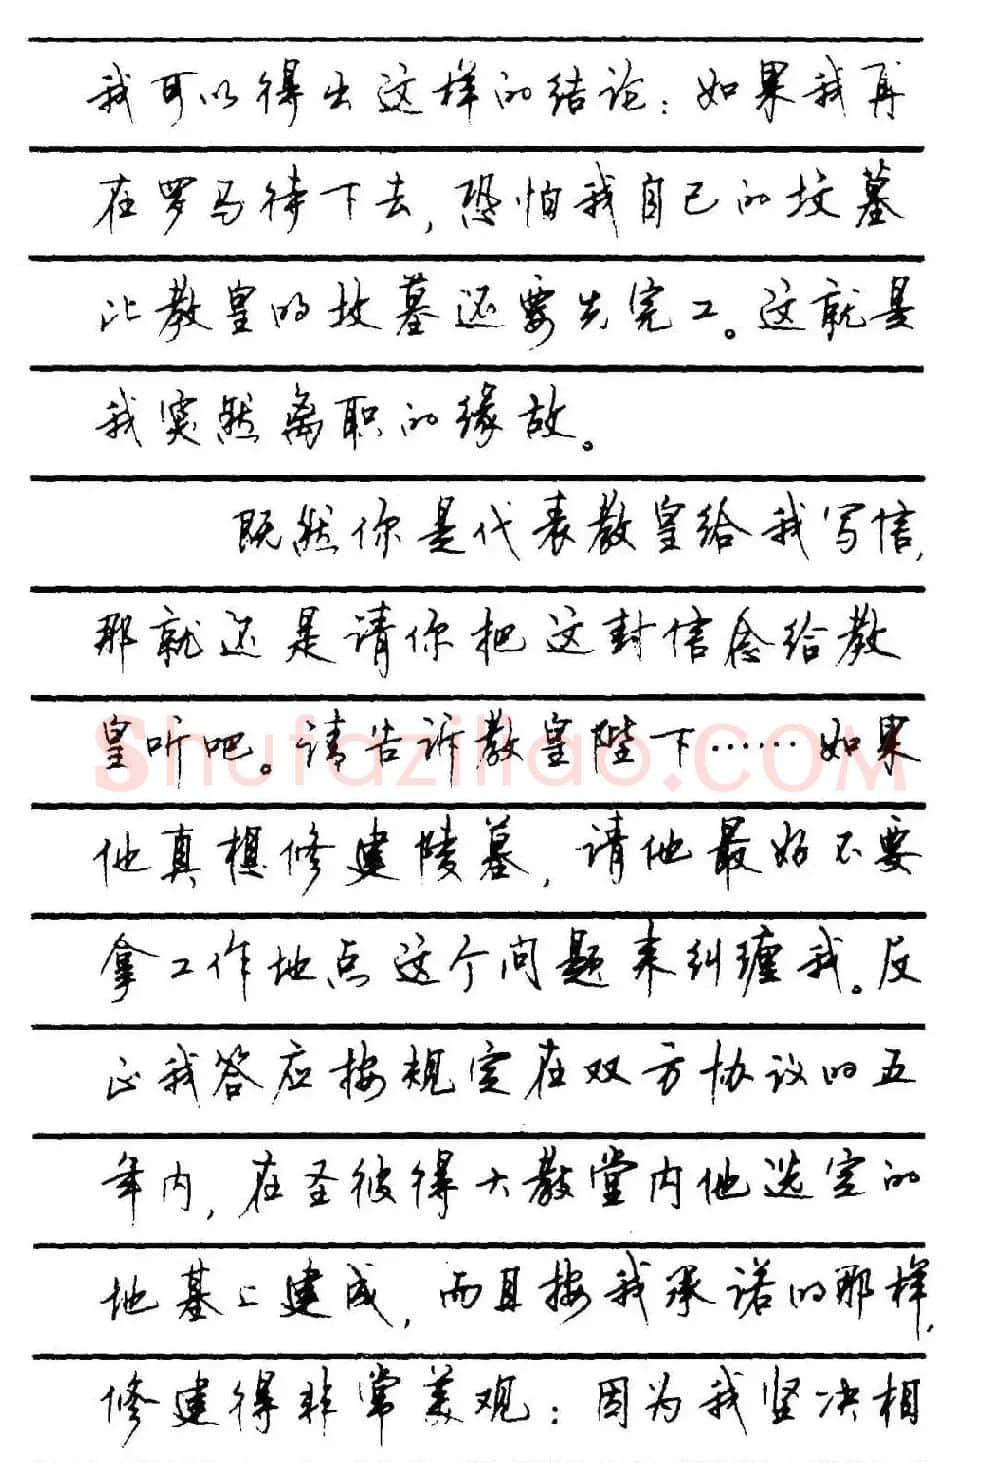 我可以得出这样的结论：如果我再
在罗马待下去，恐怕我自己的坟墓
比教皇的坟墓还要先完工。这就是
我突然离职的缘故。
既然你是代表教皇给我写信，
那就还是请你把这封信念给教
皇听吧。请告诉教皇陛下……如果
他真想修建陵墓，请他最好不要
拿工作地点这个问题来纠缠我。反
正我答应按规定在双方协议的五
年内，在圣彼得大教堂内他选定的
地基上建成，而且按我承诺的那样，
修建得非常美观：因为我坚决相
Shufaziliao.COM